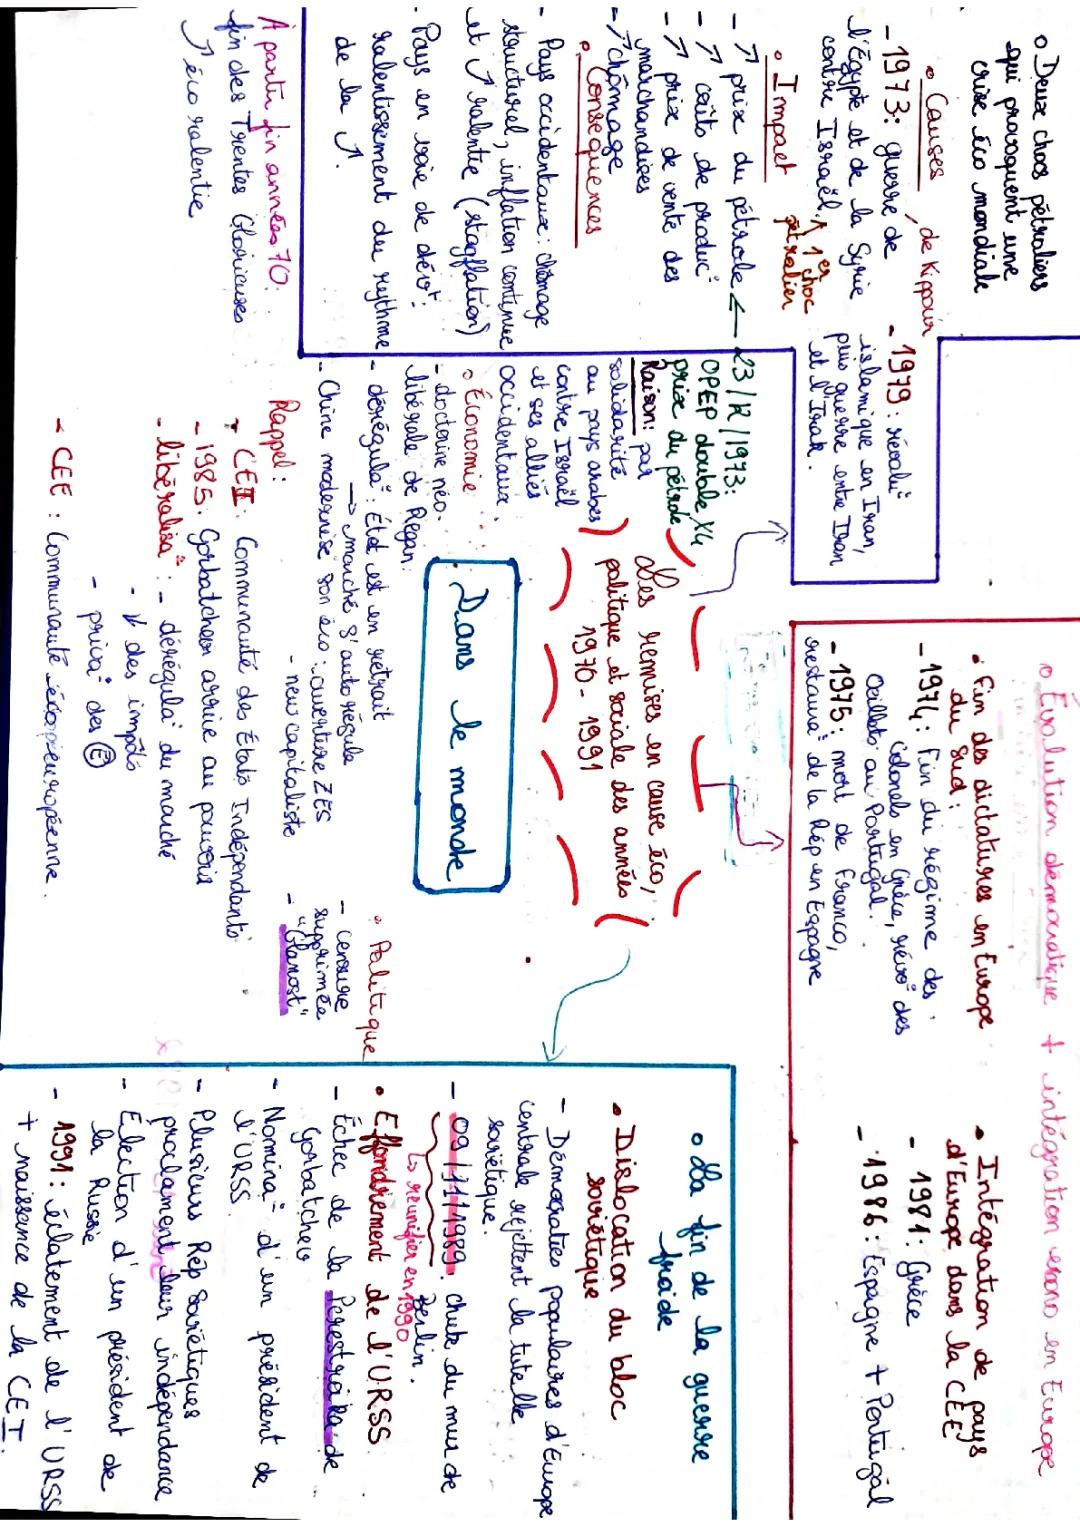 o Deux chocs pétroliers
qui provoquent une
crise éco mondiale
• Causes
- 1973 : guerre de Kippour, de
l'Égypte et de la Syrie
contre Israël. ↑ 1er choc
pétrolier
- 1979 : révolu°
islamique en Iran,
puis guerre entre Iran
et l'Irak.
• Impact
- ↗ prix du pétrole ←
- ↗ coûts de produc°
- ↗ prix de vente des
marchandises
- ↗ chômage
• Conséquences
- Pays occidentaux : chômage
structurel, inflation continue
et ↗ ralentie (stagflation)
- Pays en voie de dévt :
ralentissement du rythme
de la ↗.
À partir fin années 70 :
fin des Trentes Glorieuses
↗ éco ralentie
23/12/1973 :
OPEP double X4
prix du pétrole
Raison : par
solidarité
au pays arabes
contre Israël
et ses alliés
occidentaux.
Les remises en cause éco,
politique et sociale des années
1970 - 1991
Dans le monde
o Économie
- doctrine néo-
libérale de Regan :
- dérégula° : État est en retrait
→ marché s'auto régule
- Chine modernise son éco : ouverture ZES
- new capitaliste
• Politique
- censure
supprimée
- "Glanost"
Rappel :
- CEI : Communauté des États Indépendants
- 1985 : Gorbatchev arrive au pouvoir
- libéralisa° : - dérégula° du marché
- ↓ des impôts
- priva° des (E)
- CEE : Communauté européenne.
o Évolution démocratique + intégration en Europe
• Fin des dictatures en Europe
du Sud :
- 1974 : Fin du régime des
colonels en Grèce, révo° des
Oeillets au Portugal.
- 1975 : mort de Franco,
restaura° de la Rép en Espagne
• Intégration de pays
d'Europe dans la CEE
- 1981 : Grèce
- 1986 : Espagne + Portugal
o La fin de la guerre
froide
• Dislocation du bloc
soviétique
- Démocraties populaires d'Europe
centrale rejettent la tutelle
soviétique.
- 09/11/1989 : chute du mur de
Berlin.
↳ réunifier en 1990
• Effondrement de l'URSS
- Échec de la Perestroïka de
Gorbatchev
- Nomina° d'un président de
l'URSS.
- Plusieurs Rép Soviétiques
proclament leur indépendance
- Élection d'un président de
la Russie
- 1991 : éclatement de l'URSS
+ naissance de la CEI.